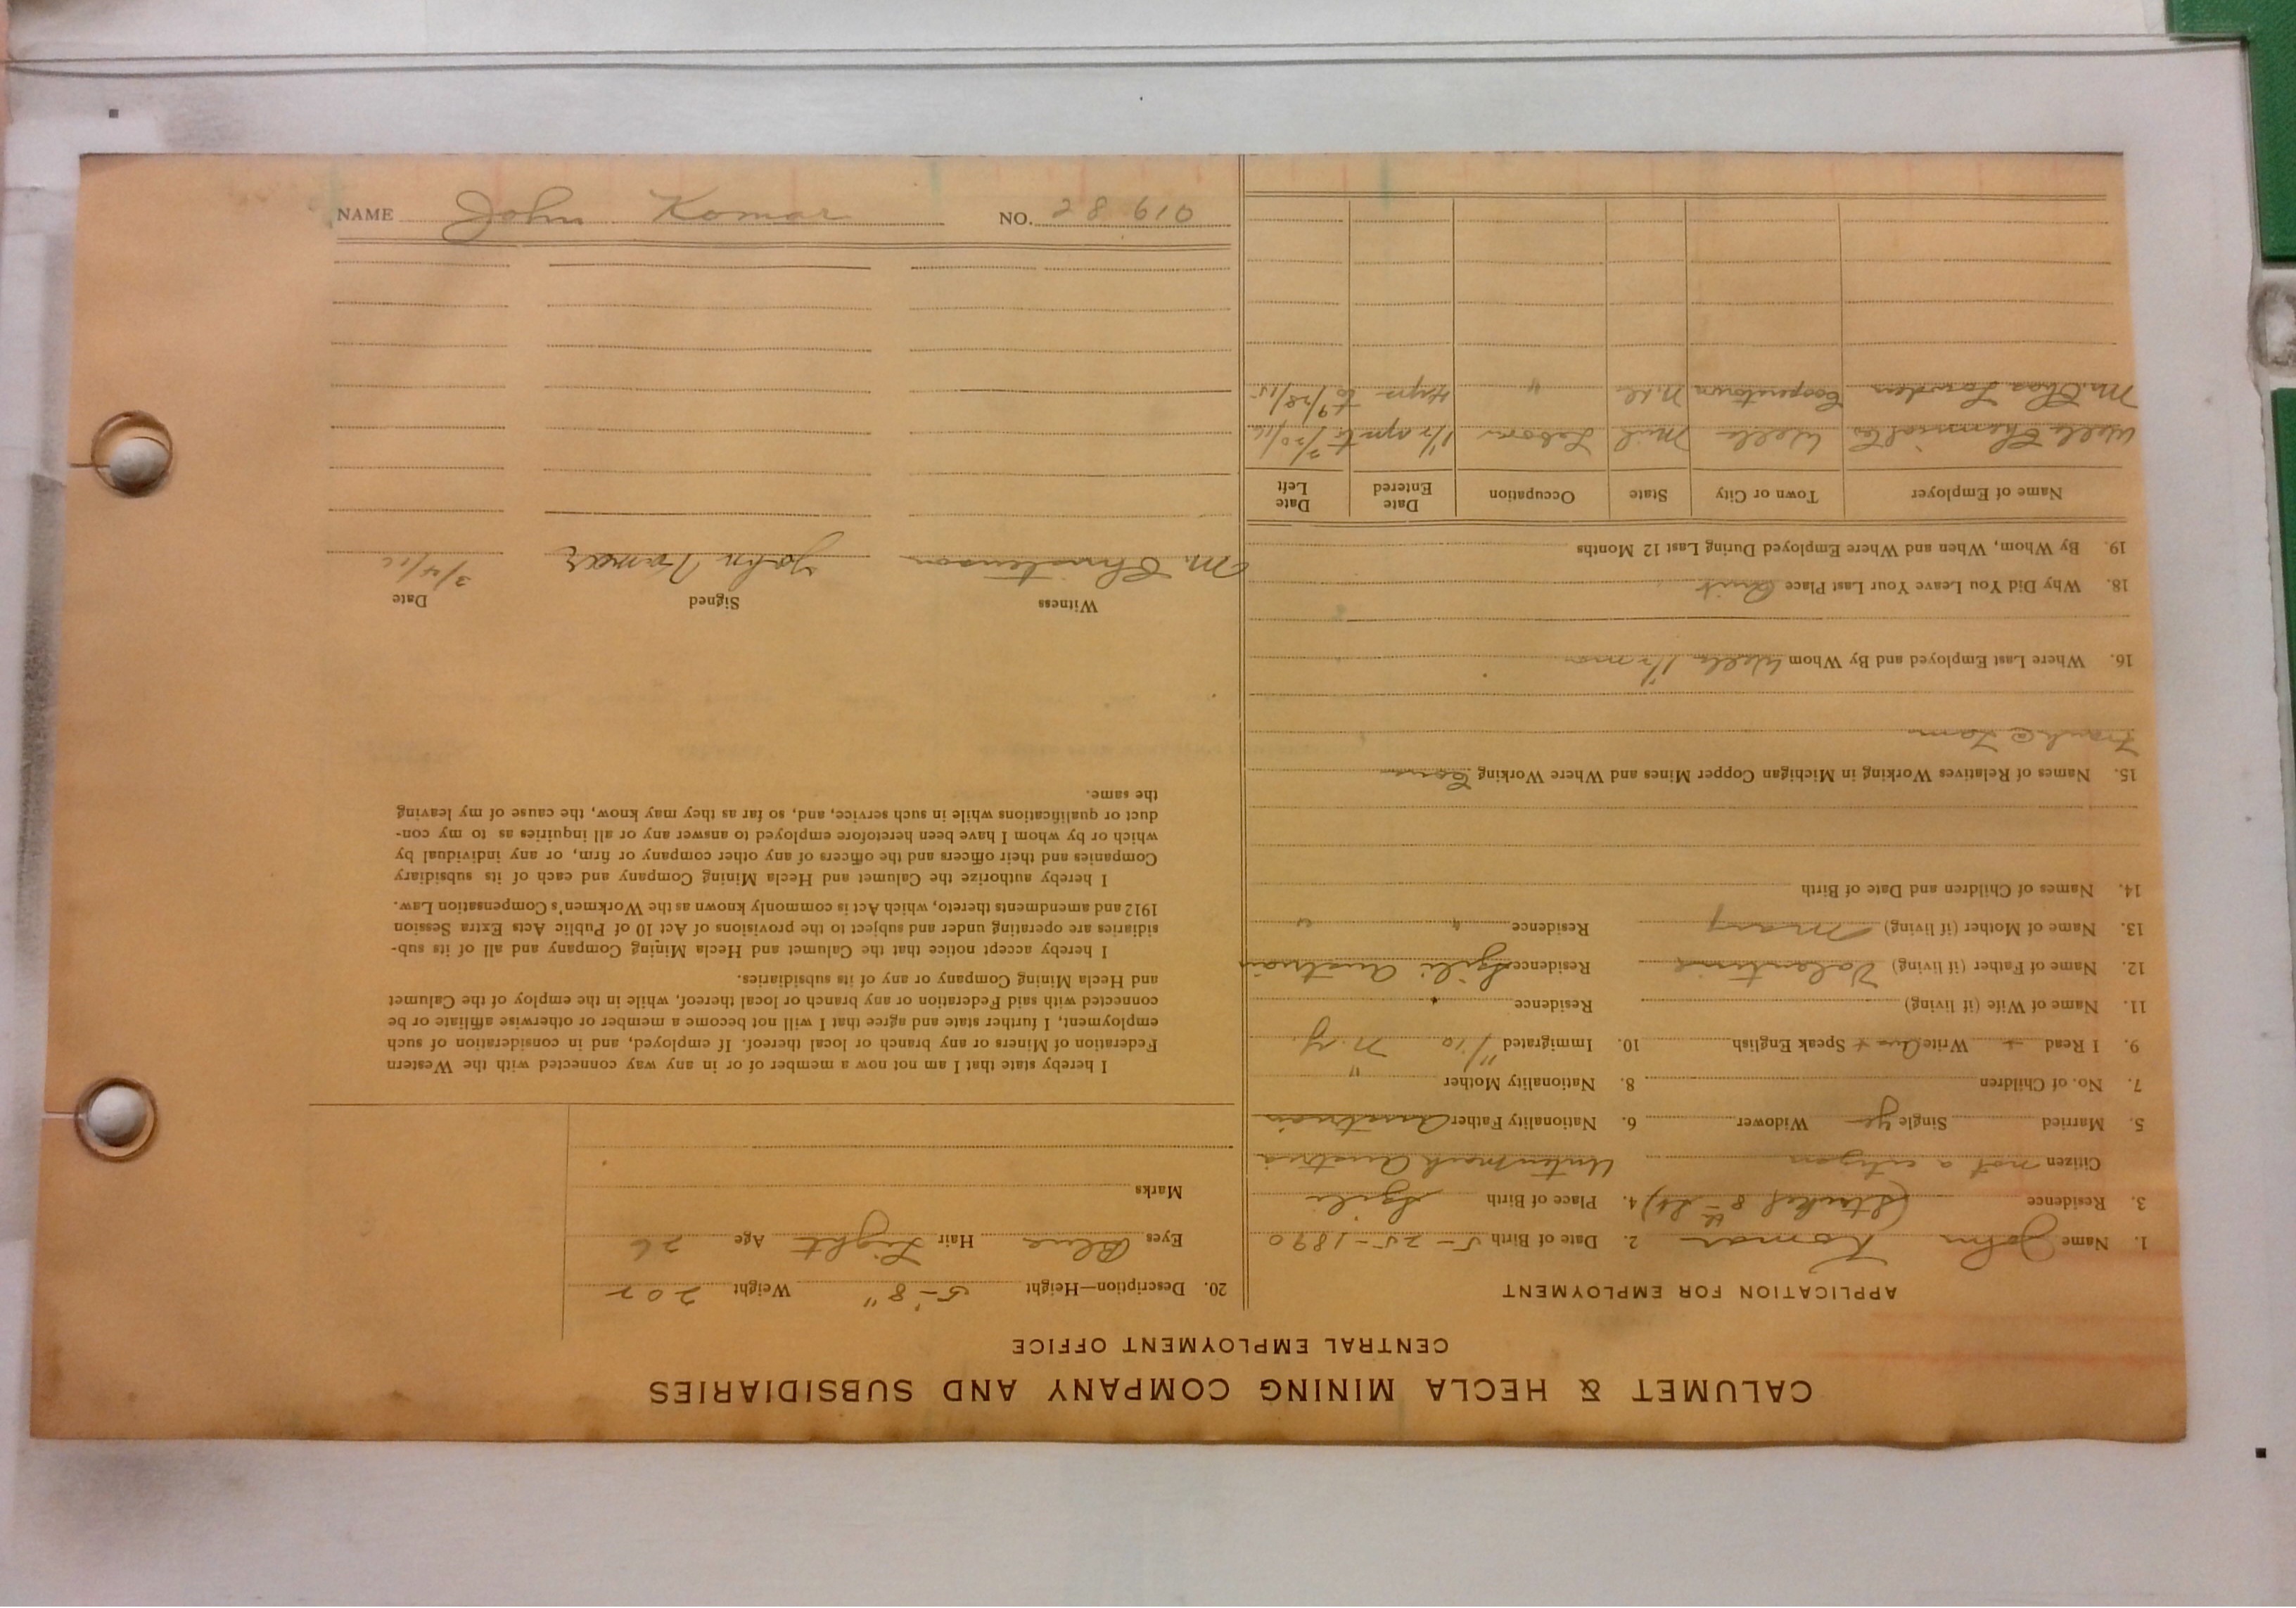 CALUMET & HECLA MINING COMPANY AND SUBSIDIARIES
CENTRAL EMPLOYMENT OFFICE
APPLICATION FOR EMPLOYMENT
1. Name John Komar 2. Date of Birth 5-25-1890
3. Residence (Stroke) 8th St) 4. Place of Birth
Citizen not a citizen Austria
5. Married Single ye Widower 6. Nationality Father Austrian
7. No. of Children 8. Nationality Mother "
9. I Read + Write Aus + Speak English 10. Immigrated 11/10 N.Y.
11. Name of Wife (if living) Residence
12. Name of Father (if living) Valentine Residence Austria
13. Name of Mother (if living) Mary Residence " "
14. Names of Children and Date of Birth
15. Names of Relatives Working in Michigan Copper Mines and Where Working
Frank @ Tam
16. Where Last Employed and By Whom Wells 1 1/2 mo
18. Why Did You Leave Your Last Place Quit
19. By Whom, When and Where Employed During Last 12 Months
Name of Employer Town or City State Occupation Date Entered Date Left
Wells Chemical Co Wells Mich Labor 1 1/2 to 2/20/16
Mr. Chas Cooperstown N.D. " 4 yrs to 9/28/15
20. Description—Height 5-8" Weight 202
Eyes Blue Hair Light Age 26
Marks
I hereby state that I am not now a member of or in any way connected with the Western
Federation of Miners or any branch or local thereof. If employed, and in consideration of such
employment, I further state and agree that I will not become a member or otherwise affiliate or be
connected with said Federation or any branch or local thereof, while in the employ of the Calumet
and Hecla Mining Company or any of its subsidiaries.
I hereby accept notice that the Calumet and Hecla Mining Company and all of its sub-
sidiaries are operating under and subject to the provisions of Act 10 of Public Acts Extra Session
1912 and amendments thereto, which Act is commonly known as the Workmen's Compensation Law.
I hereby authorize the Calumet and Hecla Mining Company and each of its subsidiary
Companies and their officers and the officers of any other company or firm, or any individual by
which or by whom I have been heretofore employed to answer any or all inquiries as to my con-
duct or qualifications while in such service, and, so far as they may know, the cause of my leaving
the same.
Witness Signed Date
M. Christenson John Komar 3/4/16
NAME John Komar NO. 28 610